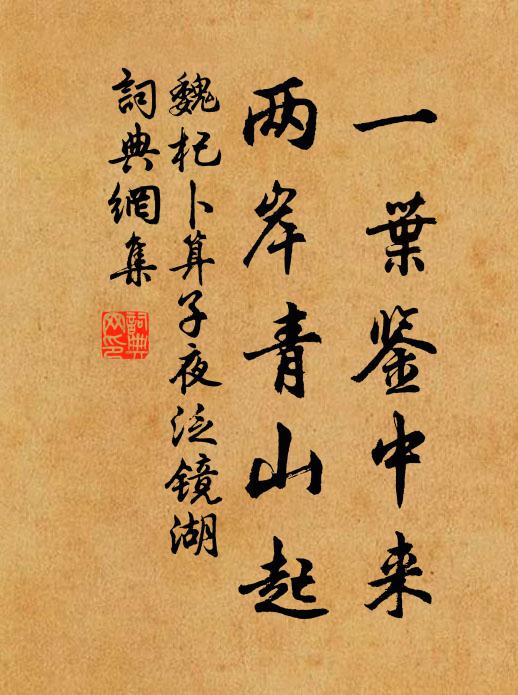 一葉鉴中来
两岸青山起
魏杞卜算子夜泛镜湖
詞典網集
詞典网印